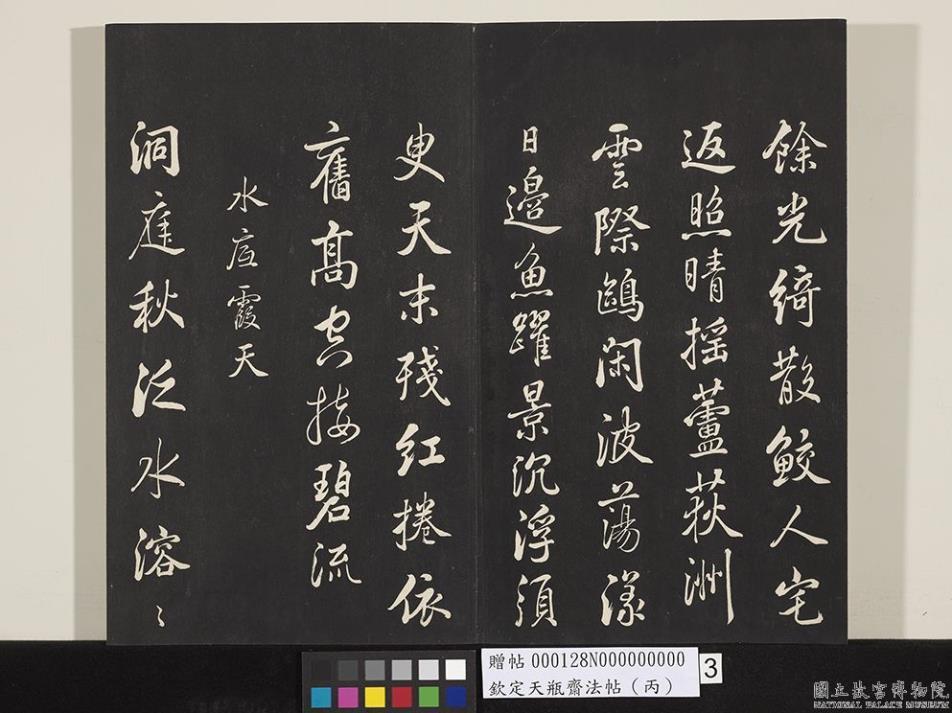 餘光綺散鮫人宅
返照晴搖蘆荻洲
雲際鷗閑波蕩漾
日邊魚躍景沉浮須
臾天末殘紅捲依
舊高空接碧流
水底霞天
洞庭秋泛水溶〻
贈帖 000128N000000000
欽定天瓶齋法帖(丙)
3
國立故宮博物院
NATIONAL PALACE MUSEUM